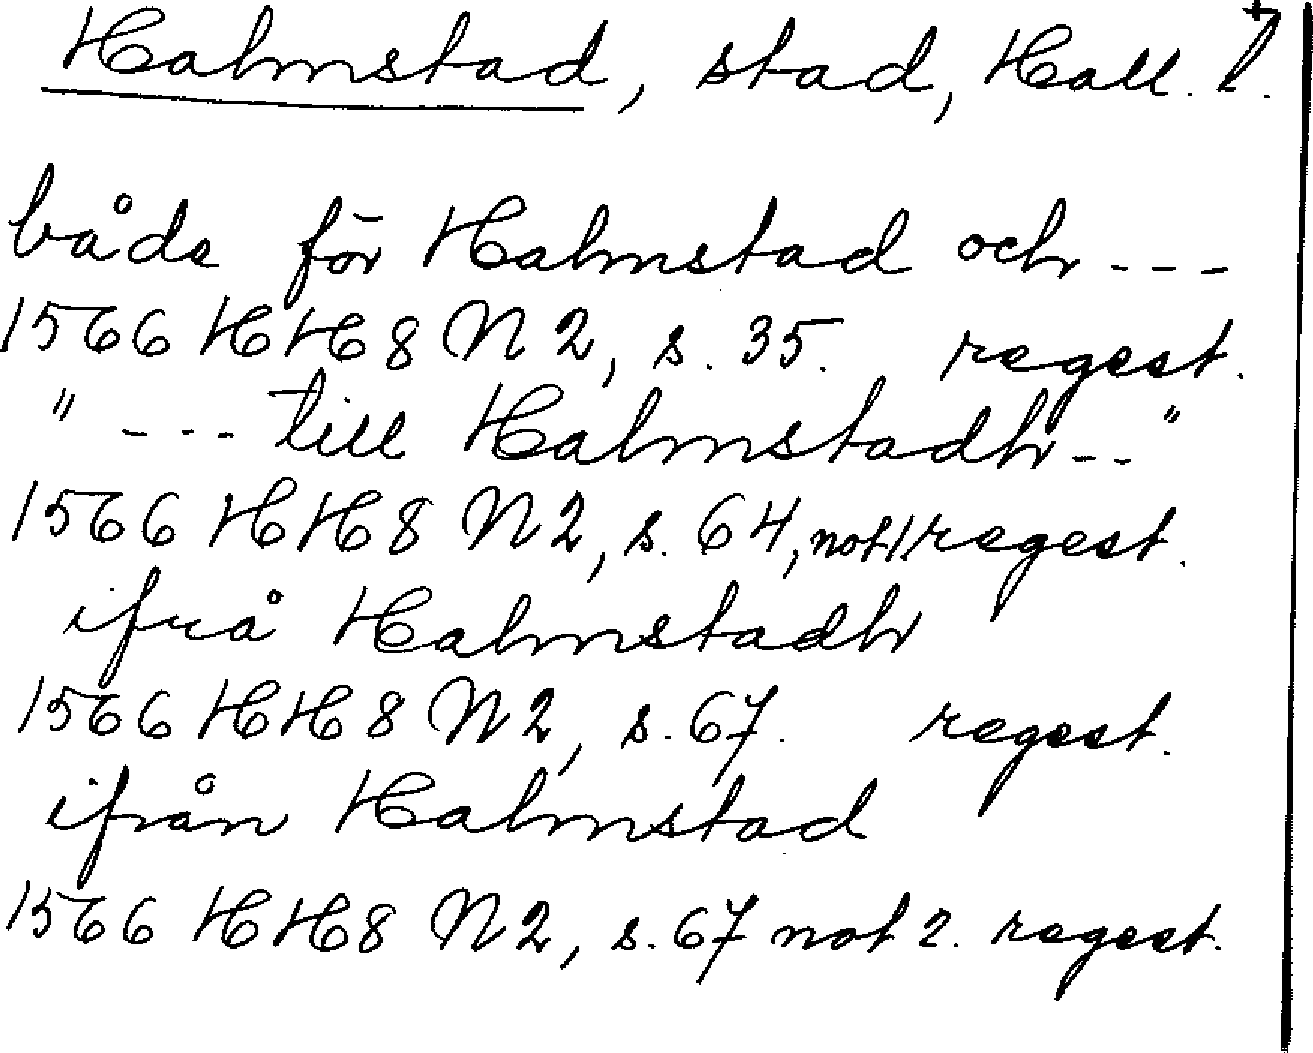 Halmstad, stad, Hall. l.
både för Halmstad och ---
1566 HH8 N2, s. 35. regest.
" --- till Halmstadh -- "
1566 HH8 N2, s. 64, not 1 regest.
ifrå Halmstadh
1566 HH8 N2, s. 67. regest.
ifrån Halmstad
1566 HH8 N2, s. 67 not 2. regest.